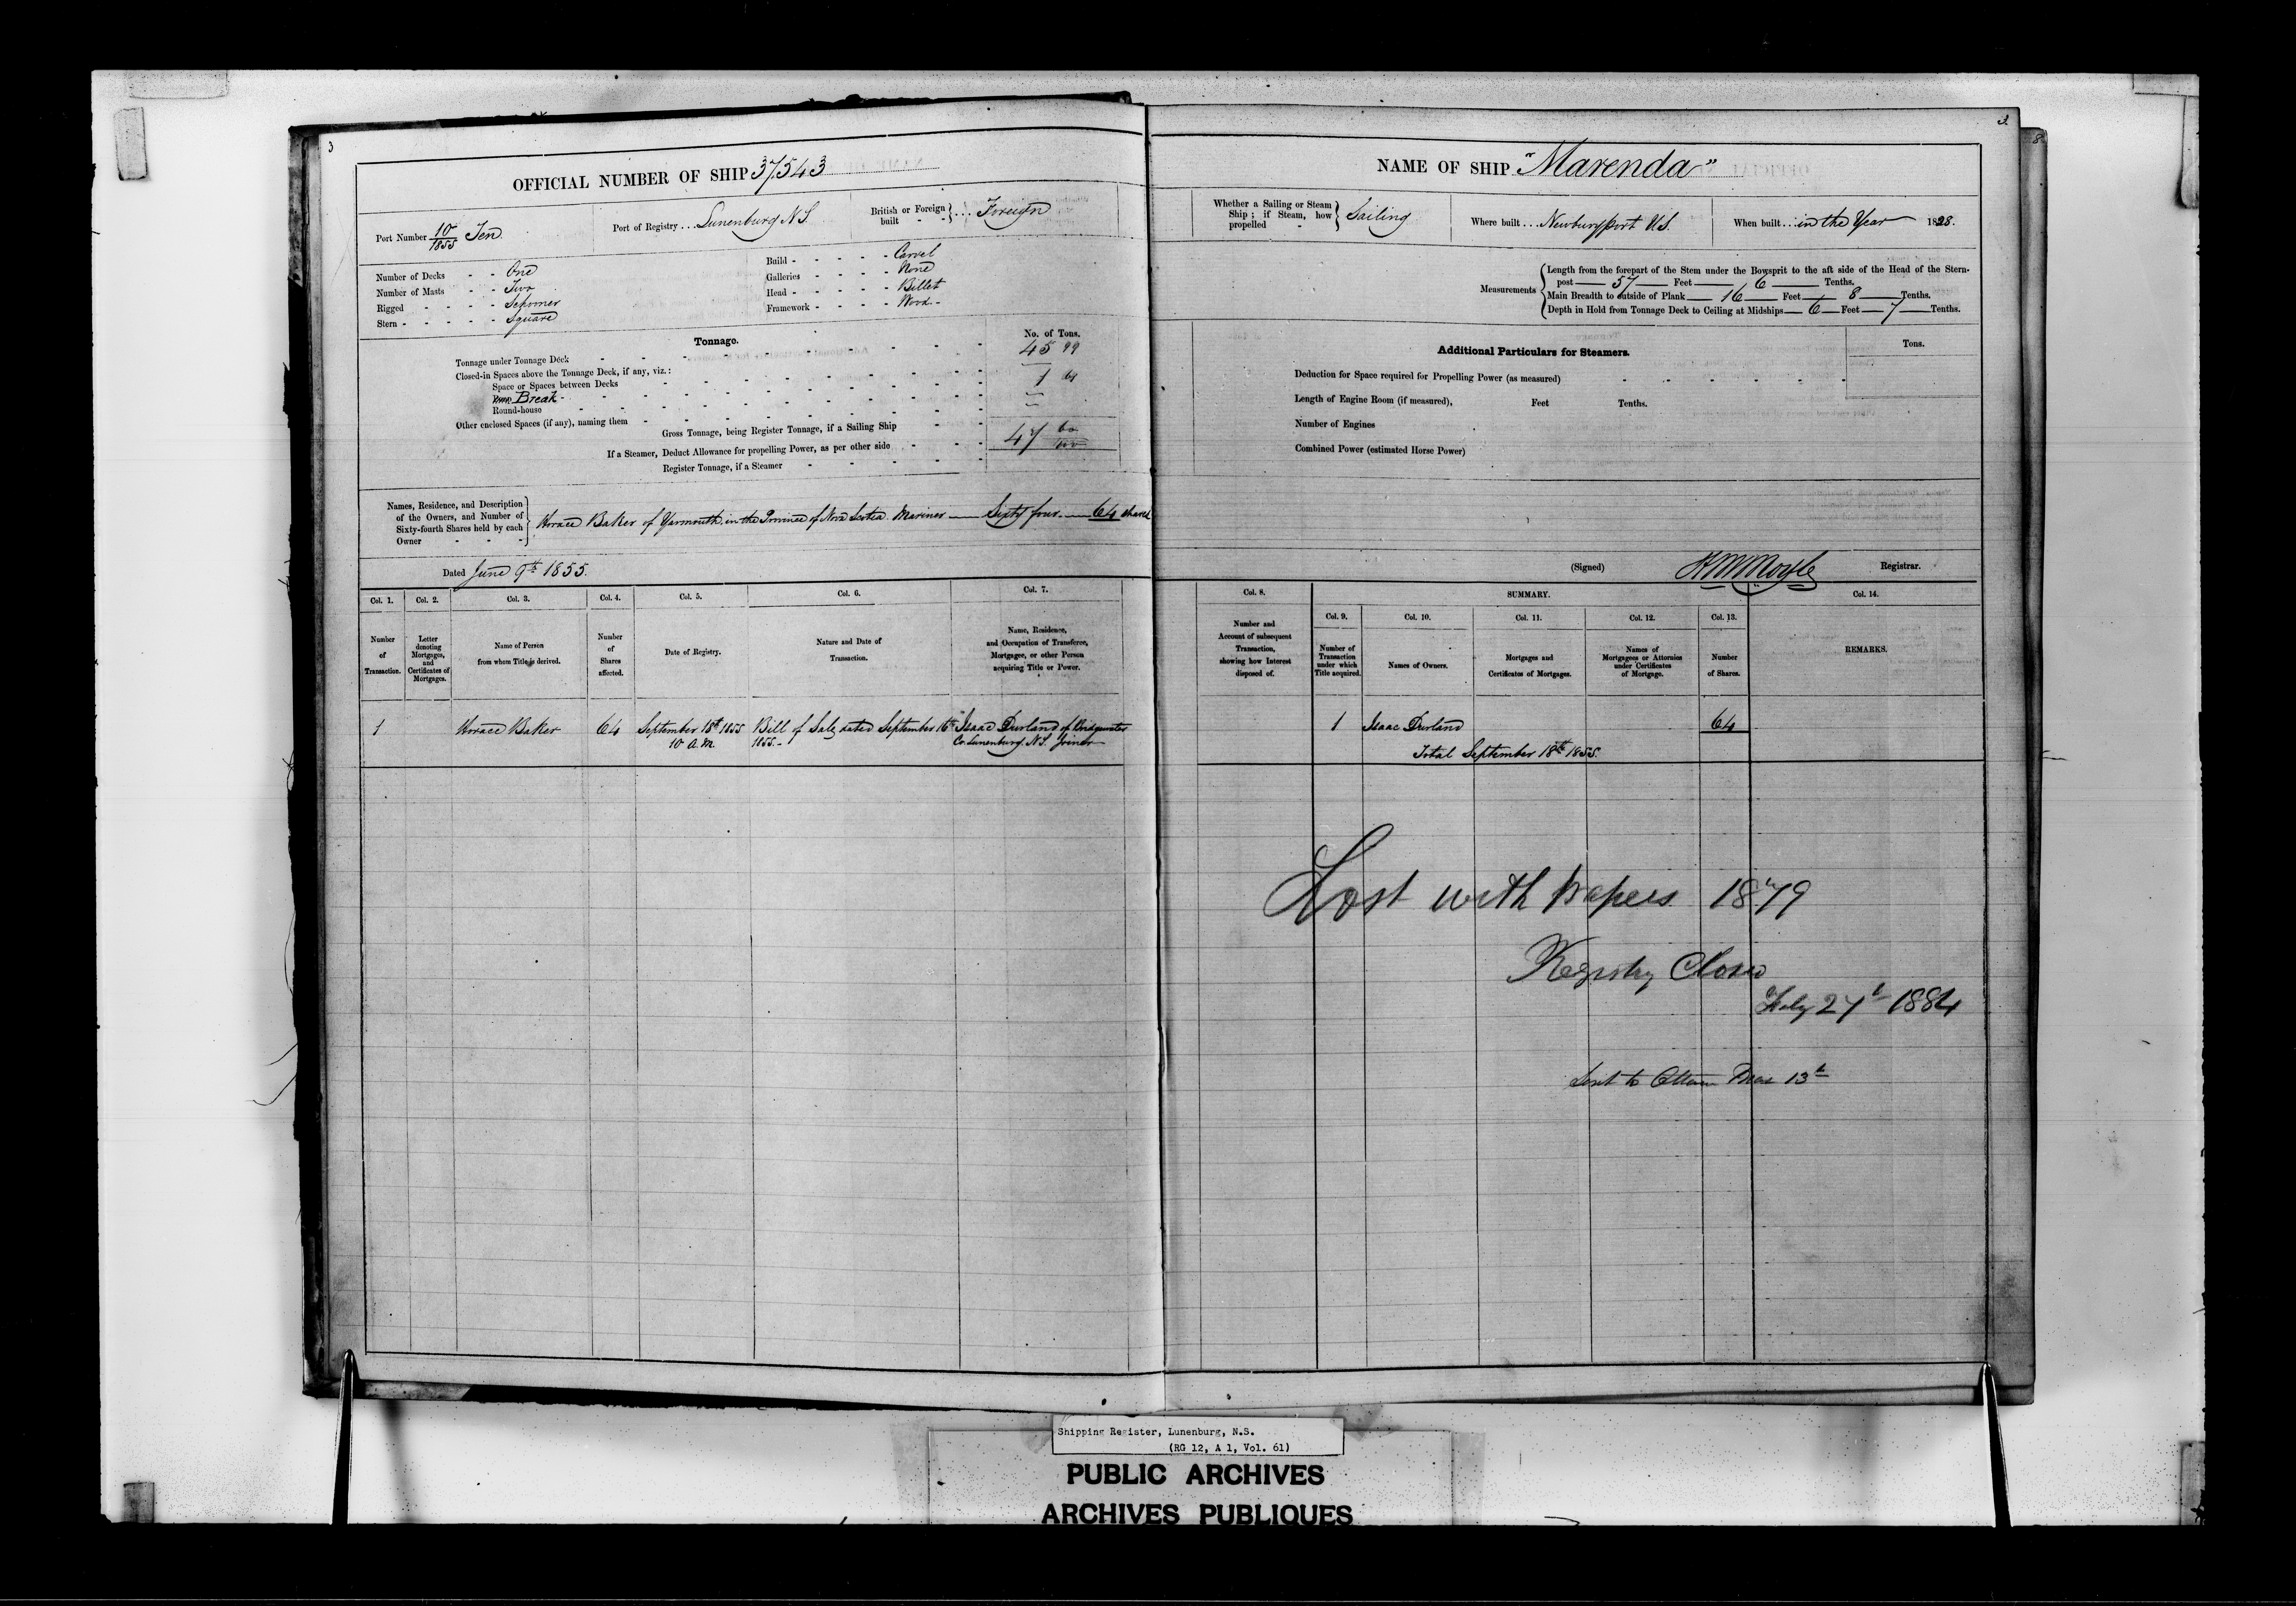 3
OFFICIAL NUMBER OF SHIP 37543
Port Number 10/1855 Ten
Port of Registry ... Lunenburg N.S.
British or Foreign built - - } ... Foreign
Number of Decks - - One
Number of Masts - - Two
Rigged - - - - Schooner
Stern - - - - - Square
Build - - - - - Carvel
Galleries - - - - None
Head - - - - - Billet
Framework - - - - Wood -
Tonnage.
No. of Tons.
Tonnage under Tonnage Deck 45 99
Closed-in Spaces above the Tonnage Deck, if any, viz.:
Space or Spaces between Decks
Break - 1 61
Round-house
Other enclosed Spaces (if any), naming them
Gross Tonnage, being Register Tonnage, if a Sailing Ship 47 60/100
If a Steamer, Deduct Allowance for propelling Power, as per other side
Register Tonnage, if a Steamer
Names, Residence, and Description
of the Owners, and Number of
Sixty-fourth Shares held by each
Owner
Horace Baker of Yarmouth in the Province of Nova Scotia Mariner — Sixty four — 64 shares
Dated June 9th 1855.
Col. 1. Col. 2. Col. 3. Col. 4. Col. 5. Col. 6. Col. 7.
Number of Transaction.
Letter denoting Mortgages, and Certificates of Mortgages.
Name of Person from whom Title is derived.
Number of Shares affected.
Date of Registry.
Nature and Date of Transaction.
Name, Residence, and Occupation of Transferee, Mortgagee, or other Person acquiring Title or Power.
1 Horace Baker 64 September 18th 1855 Bill of Sale dated September 16th Isaac Durland of Bridgewater
10 A.M. 1855.- Co. Lunenburg N.S. Joiner
3.
8
NAME OF SHIP "Marenda"
Whether a Sailing or Steam Ship; if Steam, how propelled - } Sailing
Where built ... Newburyport U.S.
When built ... in the Year 1828.
Measurements
Length from the forepart of the Stem under the Bowsprit to the aft side of the Head of the Stern-
post — 57 — Feet — 6 — Tenths.
Main Breadth to outside of Plank — 16 — Feet — 8 — Tenths.
Depth in Hold from Tonnage Deck to Ceiling at Midships — 6 — Feet — 7 — Tenths.
Additional Particulars for Steamers.
Tons.
Deduction for Space required for Propelling Power (as measured)
Length of Engine Room (if measured), Feet Tenths.
Number of Engines
Combined Power (estimated Horse Power)
(Signed) Registrar.
Col. 8. SUMMARY. Col. 14.
Col. 9. Col. 10. Col. 11. Col. 12. Col. 13.
Number and Account of subsequent Transaction, showing how Interest disposed of.
Number of Transaction under which Title acquired.
Names of Owners.
Mortgages and Certificates of Mortgages.
Names of Mortgagees or Attornies under Certificates of Mortgage.
Number of Shares.
REMARKS.
1 Isaac Durland 64
Total September 18th 1855.
Lost with papers 1879
Registry Closed
27th 1884
Sent to Ottawa Mar 13th
Shipping Register, Lunenburg, N.S.
(RG 12, A 1, Vol. 61)
PUBLIC ARCHIVES
ARCHIVES PUBLIQUES